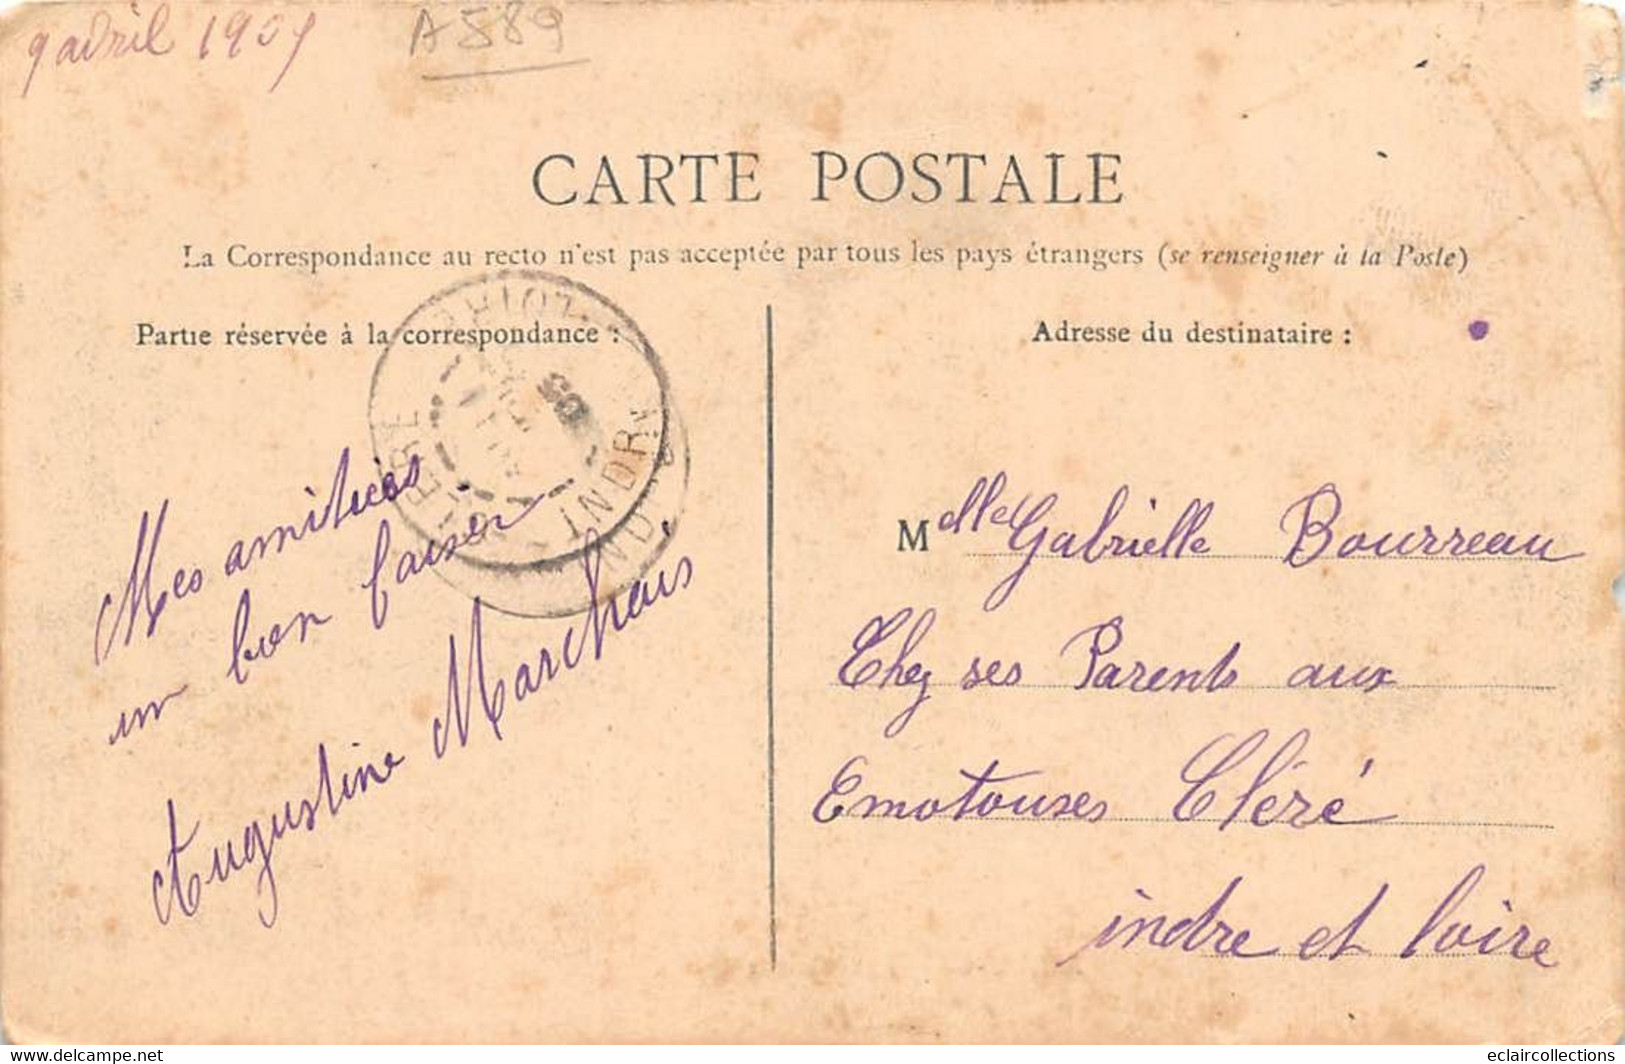 9 avril 190
A589
CARTE POSTALE
La Correspondance au recto n'est pas acceptée par tous les pays étrangers (se renseigner à la Poste)
Partie réservée à la correspondance :
Adresse du destinataire :
Mes amitiés
un bon baiser
Augustine Marchais
Melle Gabrielle Bourreau
Chez ses Parents aux
Emotouses Cléré
indre et loire
05
INDR
eclaircollections
www.delcampe.net